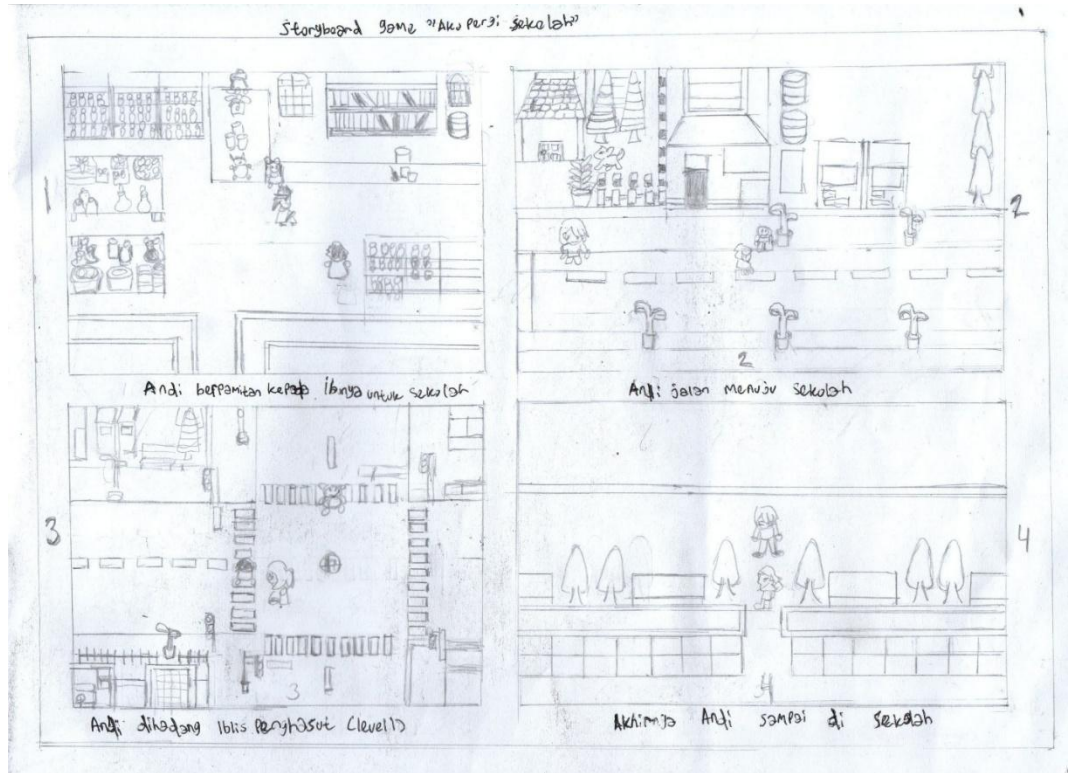 Storyboard game "Aku pergi sekolah"
1
2
2
Andi berpamitan kepada ibnya untuk sekolah
Andi jalan menuju sekolah
3
4
3
4
Andi dihadang Iblis penghasut (level 1)
Akhirnya Andi sampai di sekolah